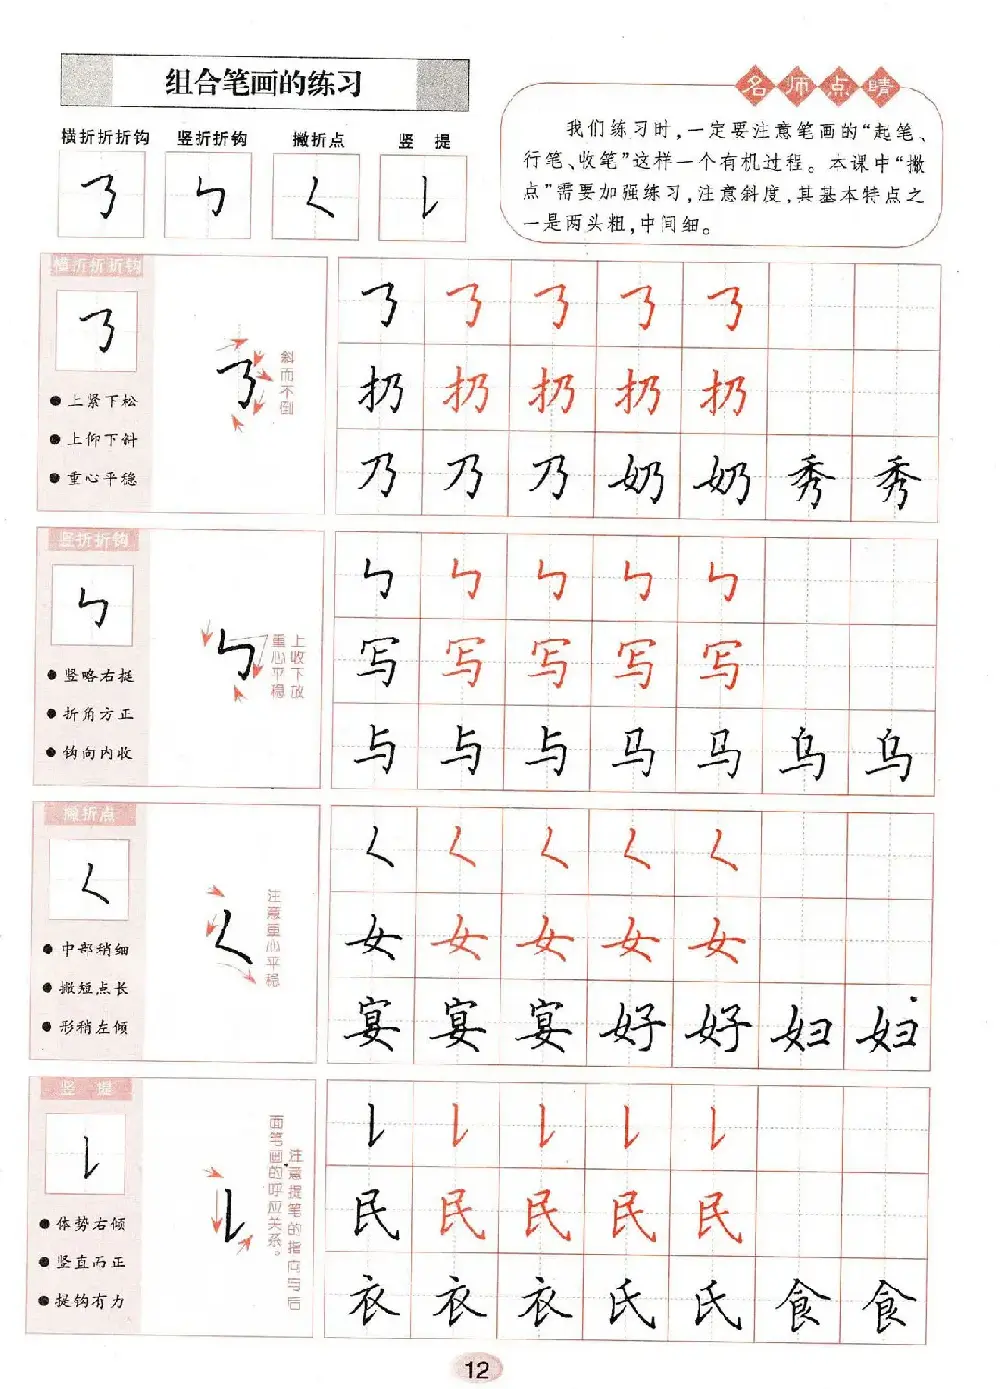 组合笔画的练习
横折折折钩 竖折折钩 撇折点 竖 提
㇋ ㄣ ㄑ 𠄌
名师点睛
我们练习时,一定要注意笔画的“起笔、
行笔、收笔”这样一个有机过程。本课中“撇
点”需要加强练习,注意斜度,其基本特点之
一是两头粗,中间细。
横折折折钩
●上紧下松
●上仰下斜
●重心平稳
斜而不倒
扔 扔 扔 扔 扔
乃 乃 乃 奶 奶 秀 秀
竖折折钩
●竖略右挺
●折角方正
●钩向内收
上收下放
重心平稳
ㄣ ㄣ ㄣ ㄣ ㄣ
写 写 写 写 写
与 与 与 马 马 乌 乌
撇折点
●中部稍细
●撇短点长
●形稍左倾
注意重心平稳
ㄑ ㄑ ㄑ ㄑ ㄑ
女 女 女 女 女
宴 宴 宴 好 好 妇 妇
竖 提
●体势右倾
●竖直而正
●提钩有力
注意提笔的指向与后
面笔画的呼应关系。
𠄌 𠄌 𠄌 𠄌 𠄌
民 民 民 民 民
衣 衣 衣 氏 氏 食 食
12